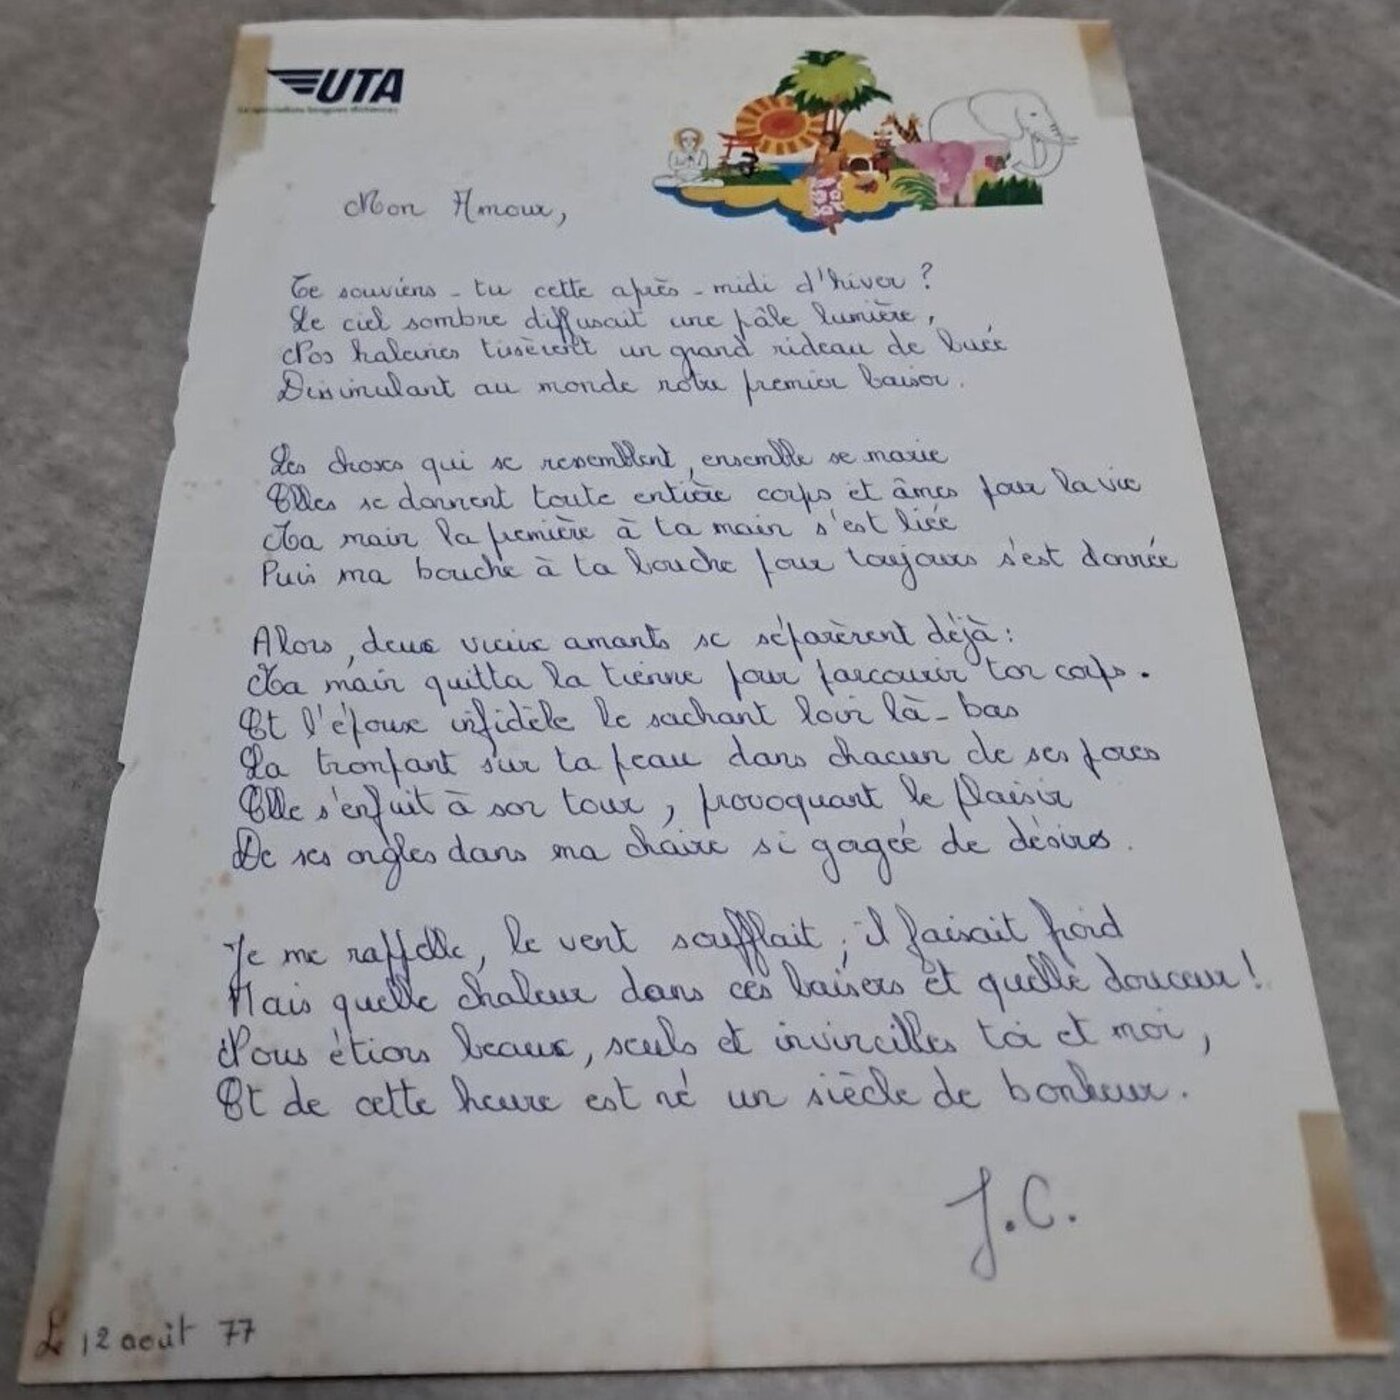 UTA
Mon Amour,
Te souviens-tu cette après-midi d'hiver ?
Le ciel sombre diffusait une pâle lumière,
Nos haleines tissèrent un grand rideau de buée
Dissimulant au monde notre premier baiser.
Les choses qui se ressemblent, ensemble se marie
Elles se donnent toute entière corps et âmes pour la vie
Ma main la première à ta main s'est liée
Puis ma bouche à ta bouche pour toujours s'est donnée
Alors, deux vieux amants se séparèrent déjà :
Ma main quitta la tienne pour parcourir ton corps.
Et l'époux infidèle le sachant loin là-bas
La trompant sur ta peau dans chacun de ses pores
Elle s'enfuit à son tour, provoquant le plaisir
De ses ongles dans ma chaire si gagée de désirs.
Je me rappelle, le vent soufflait, il faisait froid
Mais quelle chaleur dans ces baisers et quelle douceur !
Nous étions beaux, seuls et invincibles toi et moi,
Et de cette heure est né un siècle de bonheur.
J.C.
Le 12 août 77